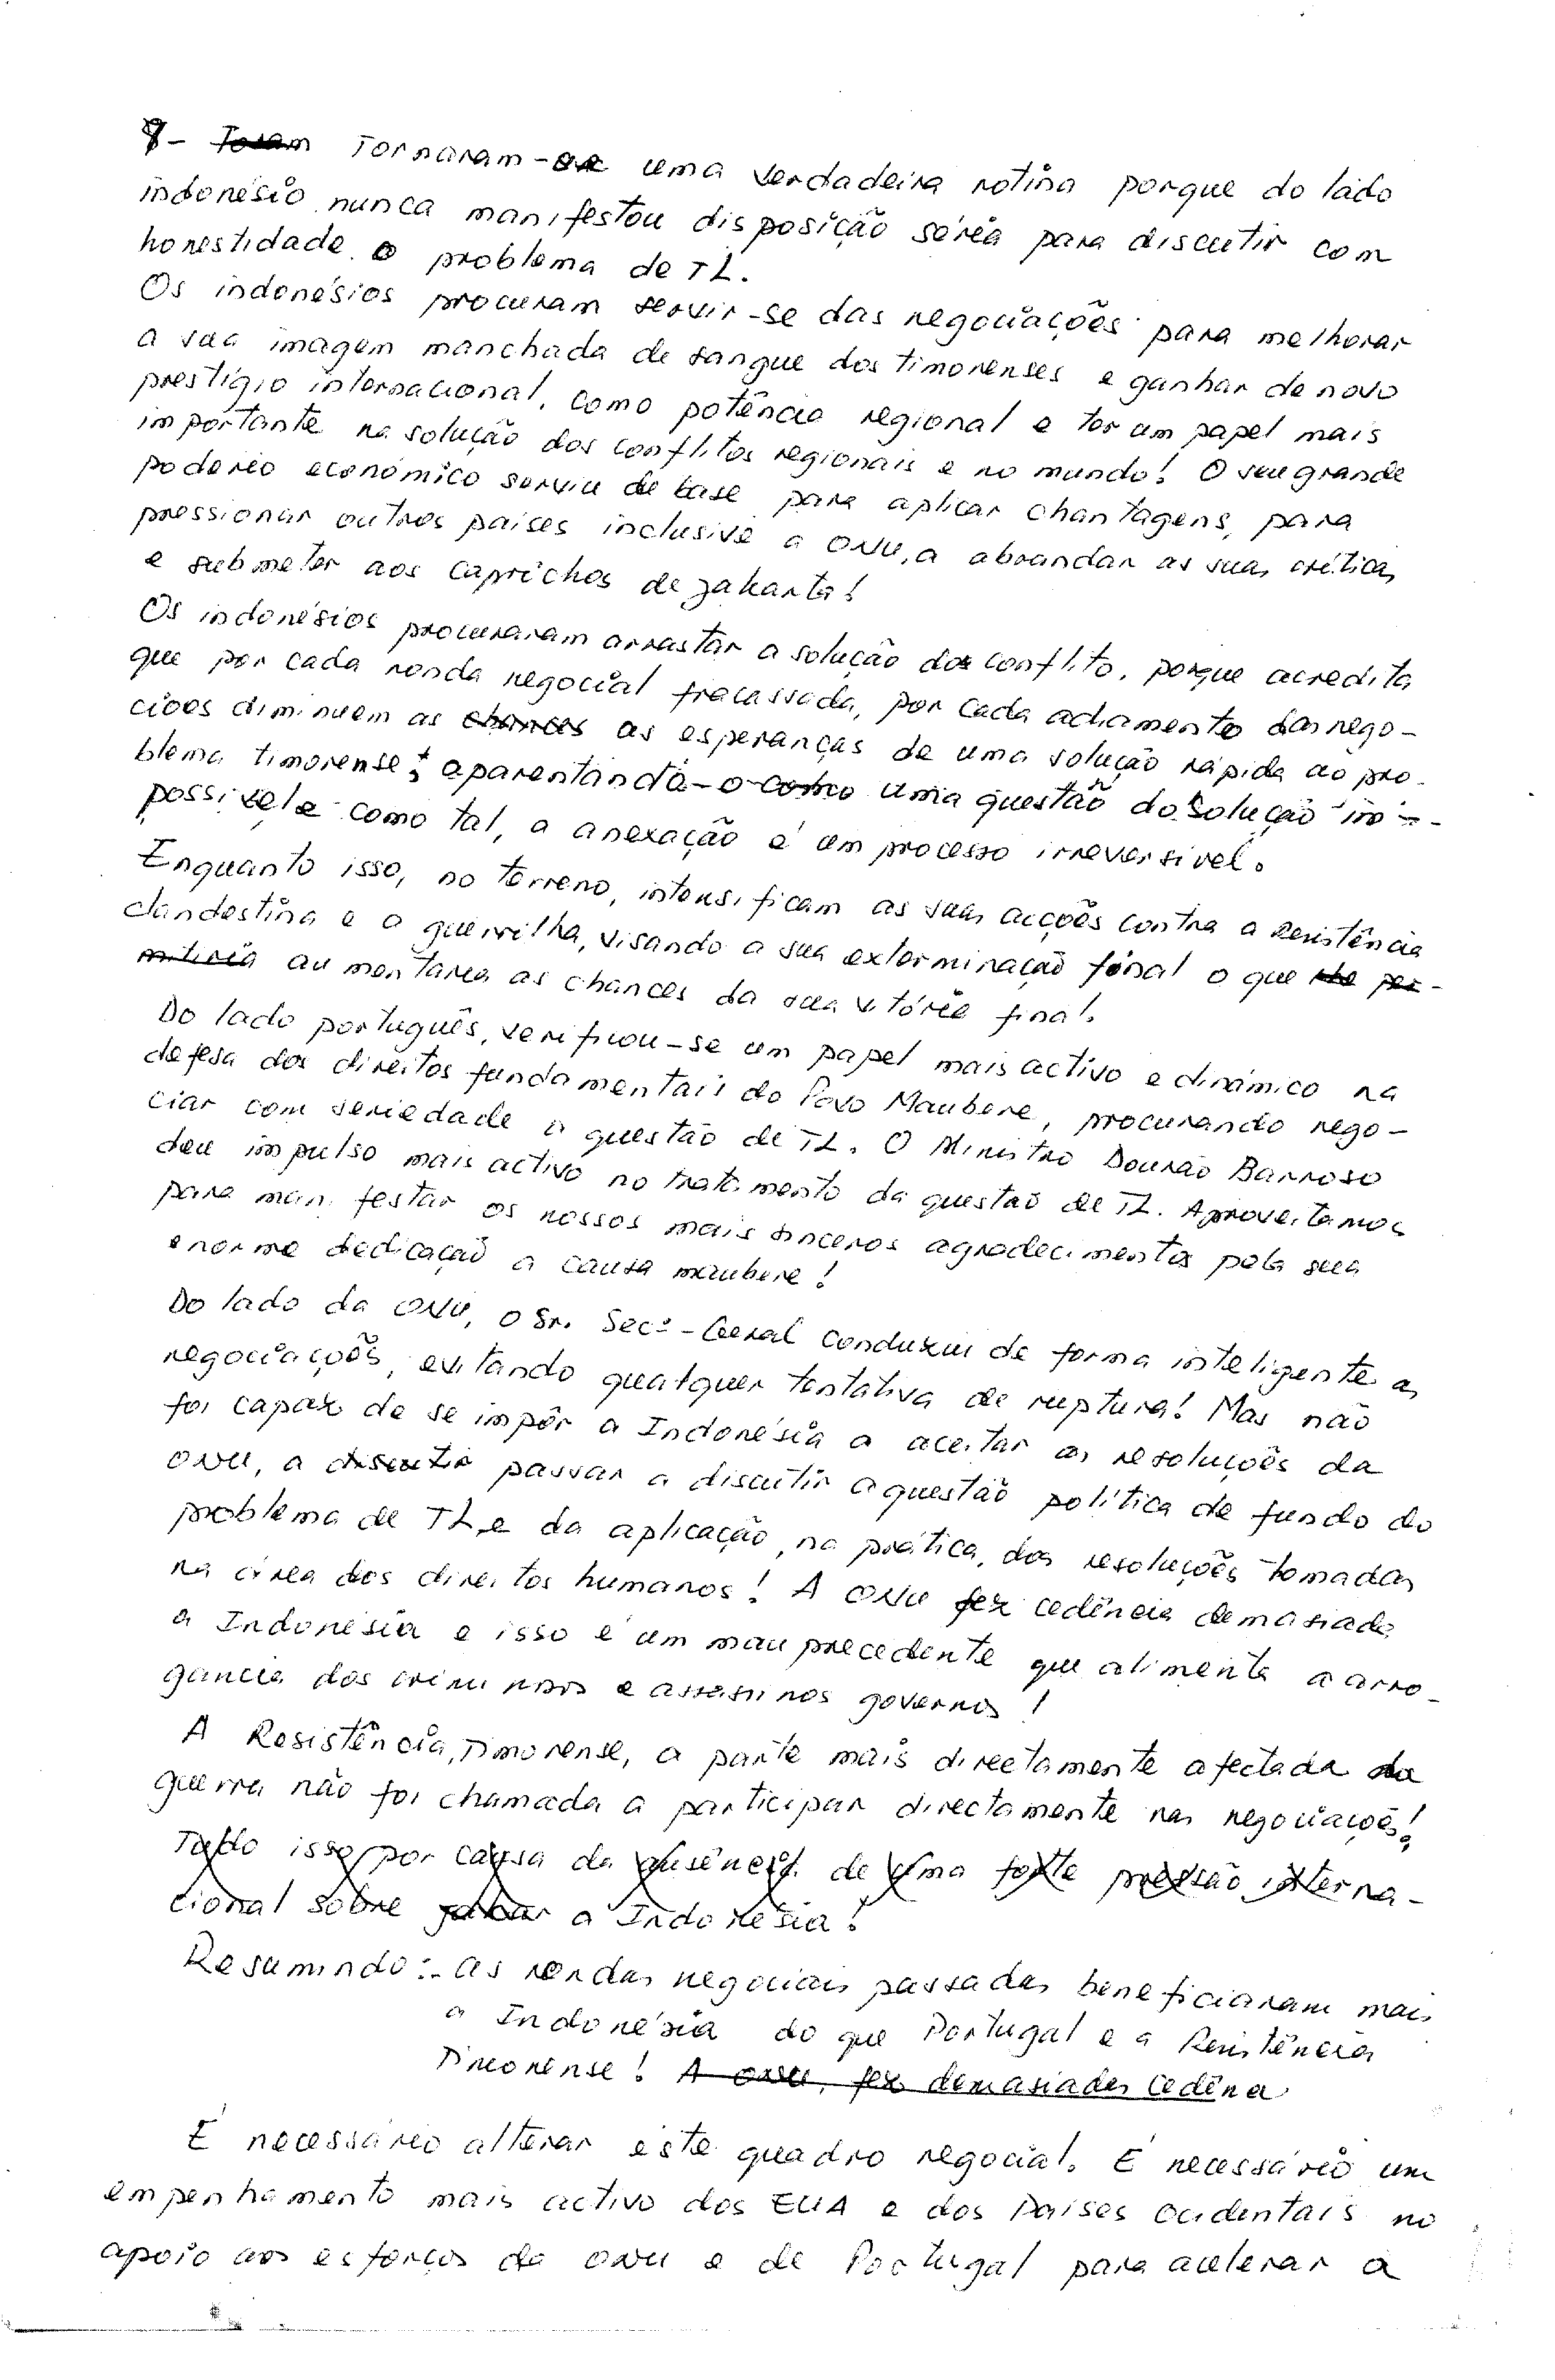 8- Foram Tornaram-se uma verdadeira rotina porque do lado
indonésio nunca manifestou disposição séria para discutir com
honestidade o problema de TL.
Os indonésios procuram servir-se das negociações para melhorar
a sua imagem manchada de sangue dos timorenses e ganhar de novo
prestígio internacional, como potência regional e ter um papel mais
importante na solução dos conflitos regionais e no mundo! O seu grande
poderio económico serviu de base para aplicar chantagens, para
pressionar outros países inclusivé a ONU, a abrandar as suas críticas
e submeter aos caprichos de Jakarta!
Os indonésios procuraram arrastar a solução do conflito, porque acredita
que por cada ronda negocial fracassada, por cada adiamento das nego-
ciões diminuem as chances as esperanças de uma solução rápida ao pro-
blema timorense; aparentando-o como uma questão do solução im-
possível e como tal, a anexação é um processo irreversível.
Enquanto isso, no terreno, intensificam as suas acções contra a Resistência
clandestina e a guerrilha, visando a sua exterminação final o que lhe per-
mitiria aumentaria as chances da sua vitória final.
Do lado português, verificou-se um papel mais activo e dinâmico na
defesa dos direitos fundamentais do Povo Maubere, procurando nego-
ciar com seriedade a questão de TL. O Ministro Dourão Barroso
deu impulso mais activo no tratamento da questão de TL. Aproveitamos
para manifestar os nossos mais sinceros agradecimentos pela sua
enorme dedicação a causa maubere!
Do lado da ONU, o Sr. Secº-Geral conduziu de forma inteligente as
negociações, evitando qualquer tentativa de ruptura! Mas não
foi capaz de se impôr a Indonésia a aceitar as resoluções da
ONU, a discutir passar a discutir a questão política de fundo do
problema de TL e da aplicação, na prática, das resoluções tomadas
na área dos direitos humanos! A ONU fez cedência demasiada
a Indonésia e isso é um mau precedente que alimenta a arro-
gância dos criminosos e assassinos governos!
A Resistência Timorense, a parte mais directamente afectada da
guerra não foi chamada a participar directamente nas negociações!
Tudo isso por causa da ausência de uma forte pressão interna-
cional sobre a Indonésia!
Resumindo:- as rondas negociais passadas beneficiaram mais
a Indonésia do que Portugal e a Resistência
Timorense! A ONU, fez demasiadas cedêna
É necessário alterar este quadro negocial. É necessário um
empenhamento mais activo dos EUA e dos Países ocidentais no
apoio aos esforços da ONU e de Portugal para acelerar a